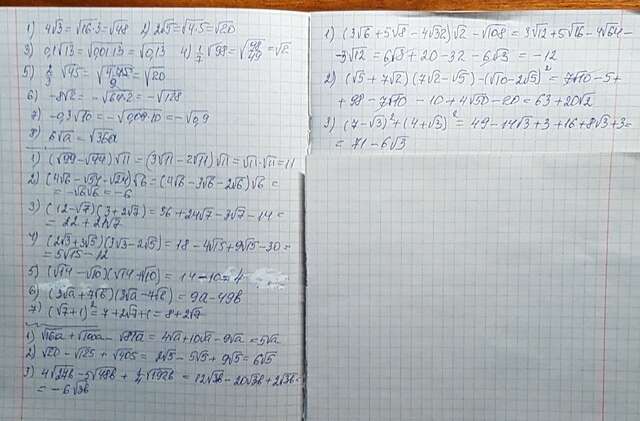 1) 4√3 = √16·3 = √48   2) 2√5 = √4·5 = √20
3) 0,1√13 = √0,01·13 = √0,13   4) 1/7 √98 = √98/49 = √2
5) 2/3 √45 = √4·45/9 = √20
6) -8√2 = -√64·2 = -√128
7) -0,3√10 = -√0,09·10 = -√0,9
8) 6√a = √36a
1) (√99 - √44)√11 = (3√11 - 2√11)√11 = √11·√11 = 11
2) (4√6 - √54 - √24)√6 = (4√6 - 3√6 - 2√6)√6 =
= -√6√6 = -6
3) (12-√7)(3+2√7) = 36 + 24√7 - 3√7 - 14 =
= 22 + 21√7
4) (2√3+3√5)(3√3-2√5) = 18 - 4√15 + 9√15 - 30 =
= 5√15 - 12
5) (√14 - √10)(√14+√10) = 14 - 10 = 4
6) (3√a + 7√b)(3√a - 7√b) = 9a - 49b
7) (√7+1)² = 7 + 2√7 + 1 = 8 + 2√7
1) √16a + √100a - √81a = 4√a + 10√a - 9√a = 5√a
2) √20 - √125 + √405 = 2√5 - 5√5 + 9√5 = 6√5
3) 4√27b - 5√48b + 1/4 √192b = 12√3b - 20√3b + 2√3b =
= -6√3b
1) (3√6 + 5√8 - 4√32)√2 - √108 = 3√12 + 5√16 - 4√64 -
- 3√12 = 6√3 + 20 - 32 - 6√3 = -12
2) (√5 + 7√2)(7√2 - √5) - (√10 - 2√5)² = 7√10 - 5 +
+ 98 - 7√10 - 10 + 4√50 - 20 = 63 + 20√2
3) (7-√3)² + (4+√3)² = 49 - 14√3 + 3 + 16 + 8√3 + 3 =
= 71 - 6√3